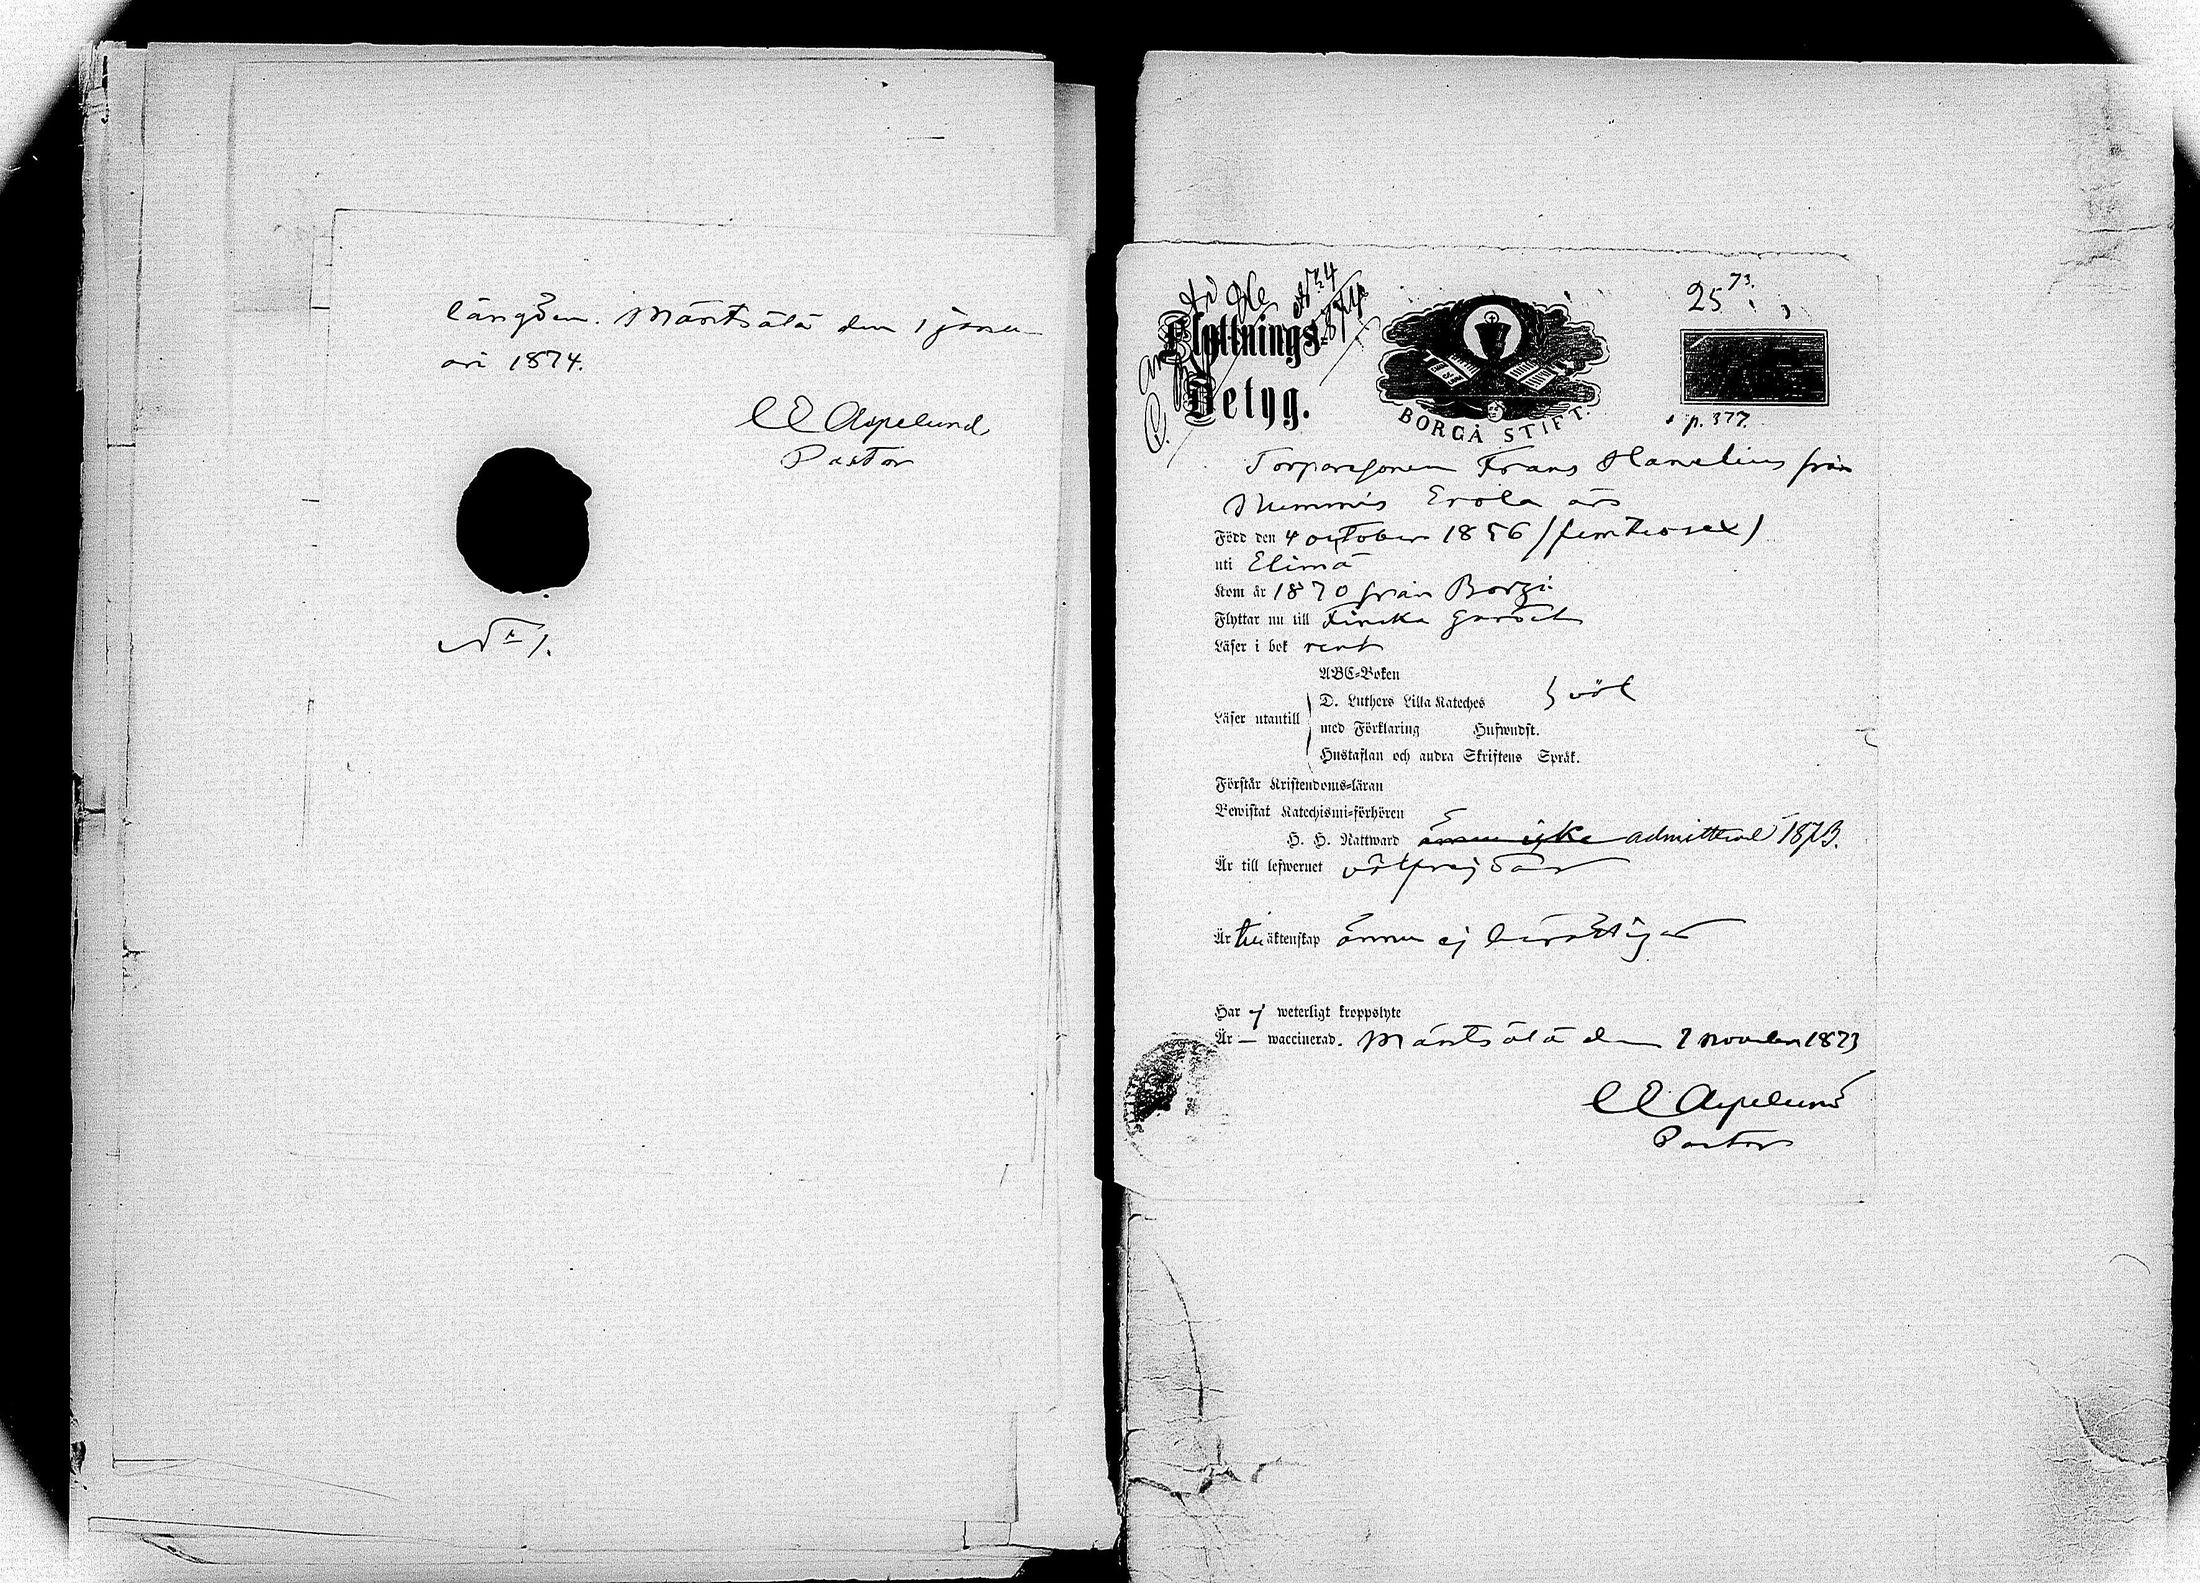 längden. Mäntsälä den 1 janu-
ari 1874.
C E Aspelund
Pastor
N:r 1.
N:r 4
1874
25 73.
Flyttnings-
Betyg.
BORGÅ STIFT.
p. 377.
Torparesonen Frans Hanelius från
Nummis Erola är
Född den 4 october 1856 (femtiosex)
uti Elimä
Kom år 1870 från Borgå
Flyttar nu till Finska gardet
Läser i bok rent
ABC-Boken
D. Luthers Lilla Kateches } väl
Läser utantill
med Förklaring Husandst.
Hustaflan och andra Skriftens Språk.
Förstår Kristendoms-läran
Bewistat Katechismi-förhören
H. H. Nattward ännu icke admitterad 1873.
Är till lefwernet välfrejdad
Är till äktenskap ännu ej berättigad
Har ej weterligt kroppslyte
Är — waccinerad. Mäntsälä den 7 november 1873
C E Aspelund
Pastor